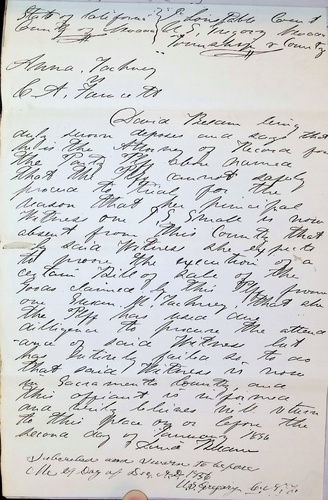 State of California
County of
Township & County
Anna Tackney
v
C. A. Fancett
David Belden being
duly sworn deposes and says that
he is the Attorney of Record for
the Party Plff above named
that the Plff cannot safely
proceed to trial for the
reason that her principal
witness one J E Smale is now
absent from this County that
by said witness she expects
to proove the execution of a
certain Bill of Sale of the
Goods claimed by this Plff from
one Susan M. Tackney, that she
the Plff has used due
dilligence to procure the attend
ance of said witness but
has entirely failed so to do
that said witness is now
in Sacramento County, and
this affiant is informed
and verily believes will return
to this place on or before the
second day of January 1856
David Belden
Subscribed and sworn to before
me Day of Dec A.D. 1856
Gregory